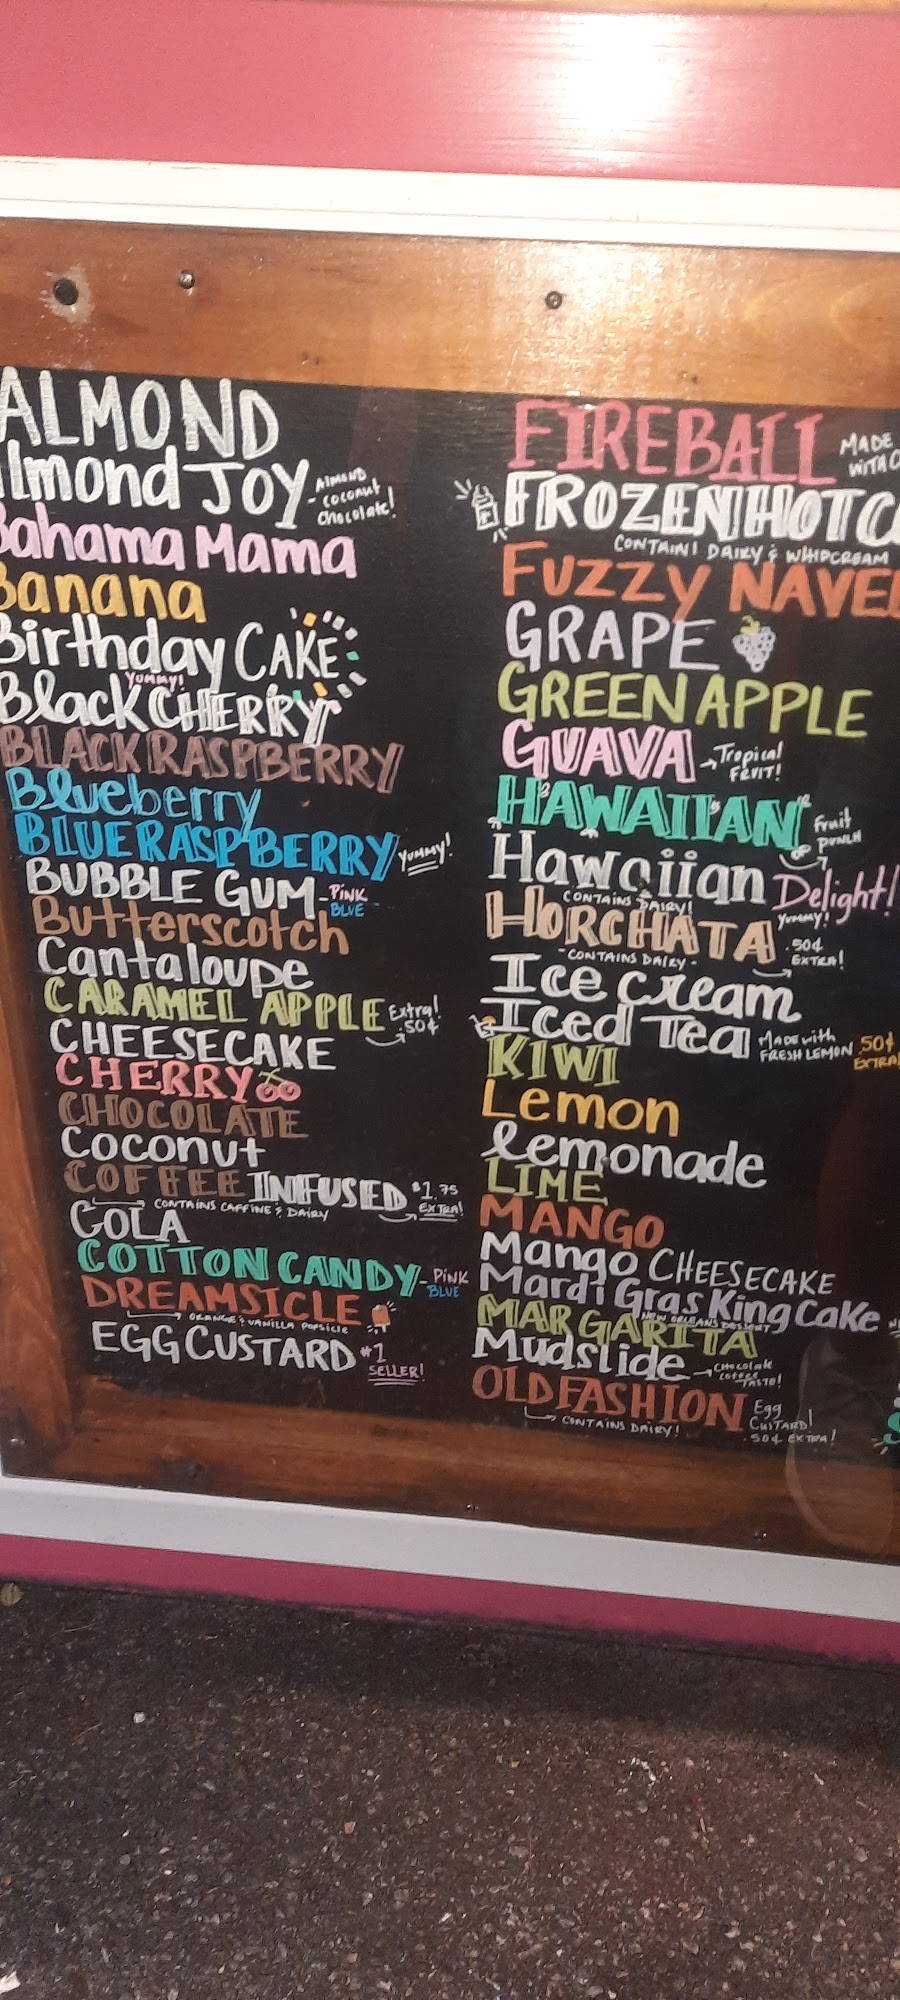 ALMOND
Almond JOY - ALMOND
COCONUT
Chocolate!
Bahama Mama
Banana
Birthday CAKE
YUMMY!
Black CHERRY
BLACK RASPBERRY
Blueberry
BLUE RASPBERRY YUMMY!
BUBBLE GUM - PINK
BLUE
Butterscotch
Cantaloupe
CARAMEL APPLE Extra!
50¢
CHEESECAKE
CHERRY
CHOCOLATE
Coconut
COFFEE INFUSED $1.75
EXTRA!
CONTAINS CAFFINE & DAIRY
COLA
COTTON CANDY - PINK
BLUE
DREAMSICLE
ORANGE & VANILLA POPSICLE
EGG CUSTARD #1
SELLER!
FIREBALL MADE
WITH
FROZEN HOT
CONTAIN! DAIRY & WHIPCREAM
FUZZY NAVEL
GRAPE
GREEN APPLE
GUAVA → Tropical
FRUIT!
HAWAIIAN Fruit
PUNCH
Hawaiian Delight!
CONTAINS DAIRY! YUMMY!
HORCHATA .50¢
EXTRA!
- CONTAINS DAIRY -
Ice cream
Iced Tea MADE with
FRESH LEMON 50¢
EXTRA
KIWI
Lemon
lemonade
LIME
MANGO
Mango CHEESECAKE
Mardi Gras King Cake
NEW ORLEANS DESSERT
MARGARITA
Mudslide → CHOCOLATE
COFFEE
TASTE!
OLD FASHION Egg
CUSTARD!
CONTAINS DAIRY! .50¢ EXTRA!